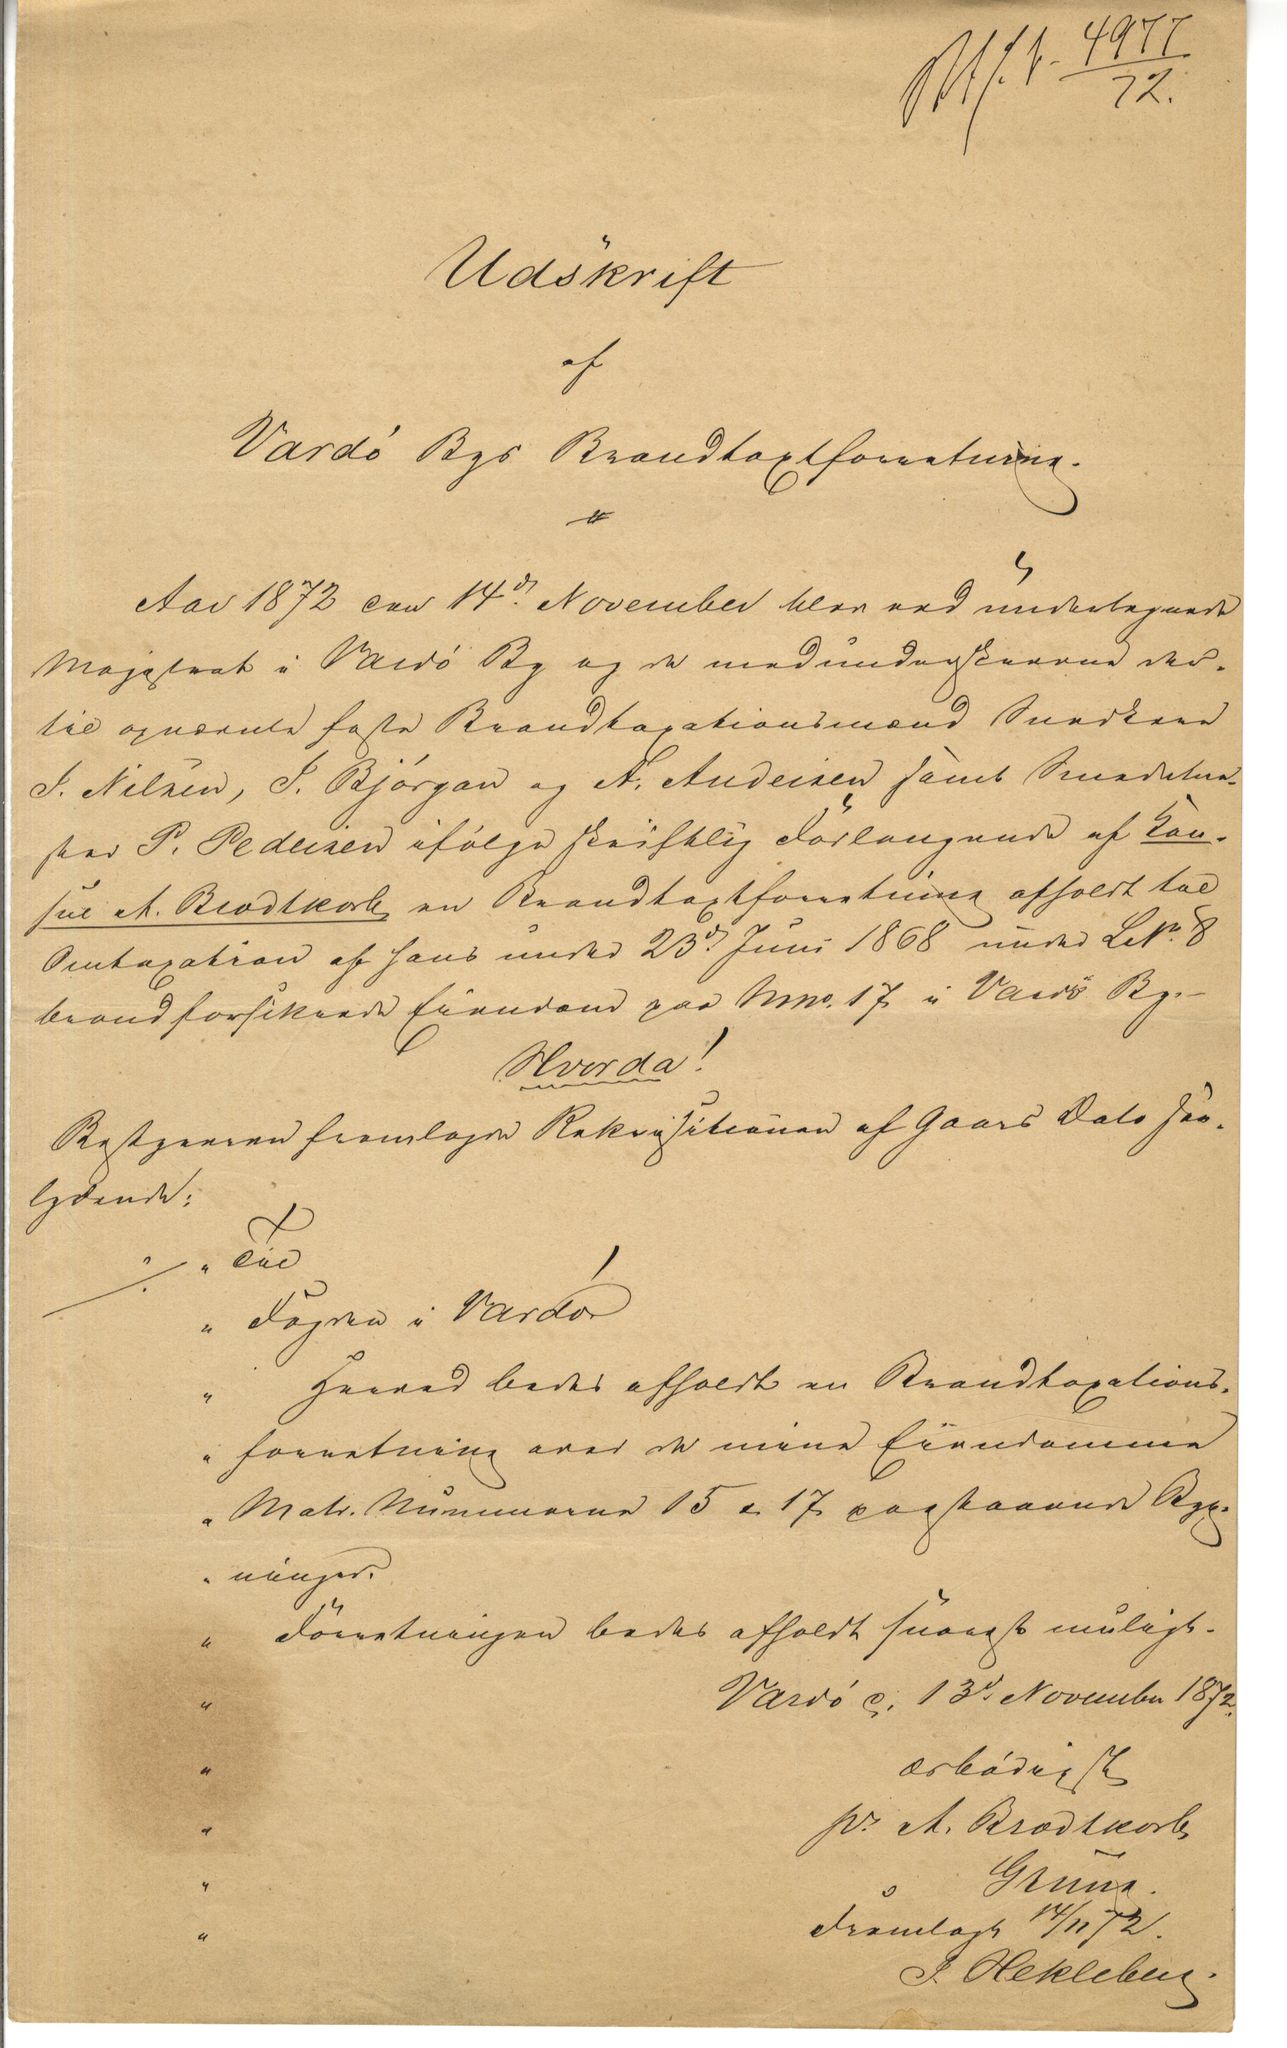 4977
72.
Udskrift
af
Vardö Bys Brandtaxtforretning.
Aar 1872 den 14d November blev ved undertegnede
Magistrat i Vardö By og de medunderskrevne der-
til opnævnte faste Brandtaxationsmænd Snedkere
J. Nilsen, J. Björgan og A. Andersen samt Smedeme-
ster P. Pedersen ifölge skriftlig Forlangende af Con-
sul A. Brodtkorb en Brandtaxtforretning afholdt til
Omtaxation af hans under 23d Juni 1868 under LNo. 8
brandforsikrede Eiendom paa Mno. 17 i Vardö By.-
Hvorda!
Bestyreren fremlagde Rekvisitionen af Gaars Dato saa-
lydende:
./. " Til
" Fogden i Vardö!
" Herved bedes afholdt en Brandtaxations-
" forretning over de mine Eiendomme
" Matr. Nummerne 15 & 17 paastaaende Byg-
" ninger.
" Forretningen bedes afholdt snarest muligt.
" Vardö d. 13d November 1872.
" ærbödigst
" pr. A. Brodtkorb
" Grunn.
" Fremlagt 14/11 72.
J. Hekleberg.